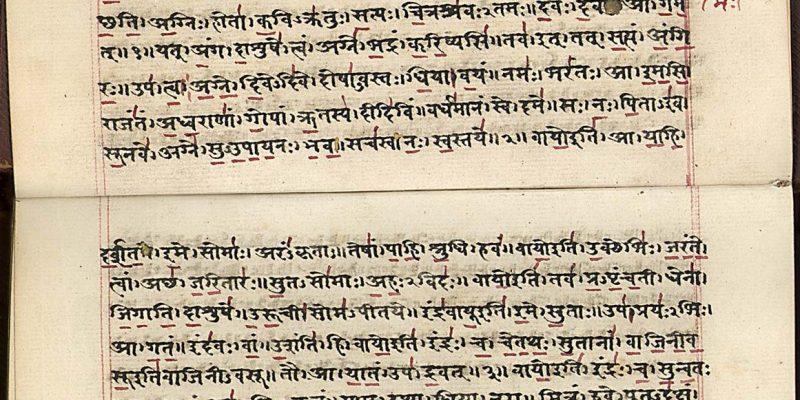 छति। अग्निः। होता। कविऽक्रतुः। सत्यः। चित्रश्रवःऽतमः॥ देवः। आ। गम
त्॥१॥ यत्। अंग। दाशुषे। त्वं। अग्ने। भद्रं। करिष्यसि॥ तव। इत्। तत्। सत्यं। अंगि
रः॥ उप। त्वा। अग्ने। दिवेऽदिवे। दोषाऽवस्तः। धिया। वयं॥ नमः। भरंतः। आ। इमसि॥
राजंतं। अध्वराणां। गोपां। ऋतस्य। दीदिविं॥ वर्धमानं। स्वे। दमे॥ सः। नः। पिताऽइव
सूनवे। अग्ने। सुऽउपायनः। भव॥ सचस्व। नः। स्वस्तये॥२॥ वायो इति। आ। याहि।
दर्शत। इमे। सोमाः। अरंऽकृताः॥ तेषां। पाहि। श्रुधि। हवं॥ वायो इति। उक्थेभिः। जरंते
त्वां। अच्छ। जरितारः॥ सुतऽसोमाः। अहःऽविदः॥ वायो इति। तव। प्रऽपृंचती। धेना।
जिगाति। दाशुषे॥ उरूची। सोमऽपीतये॥ इंद्रवायू इति। इमे। सुताः॥ उप। प्रयःऽभिः।
आ। गतं॥ इंदवः। वां। उशंति। हि॥ वायो इति। इंद्रः। च। चेतथः। सुतानां। वाजिनीव
सू इति वाजिनीऽवसू॥ तौ। आ। यातं। उप। द्रवत्॥३॥ वायो इति। इंद्रः। च। सुन्वतः